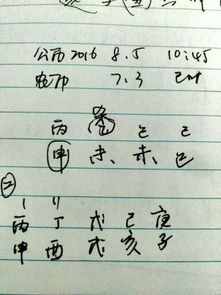 公历2016 8.5 10:45
农历 7.3 巳时
丙 乙 己 己
申 未 未 巳
②
1 11
丙 丁 戊 己 庚
申 酉 戌 亥 子